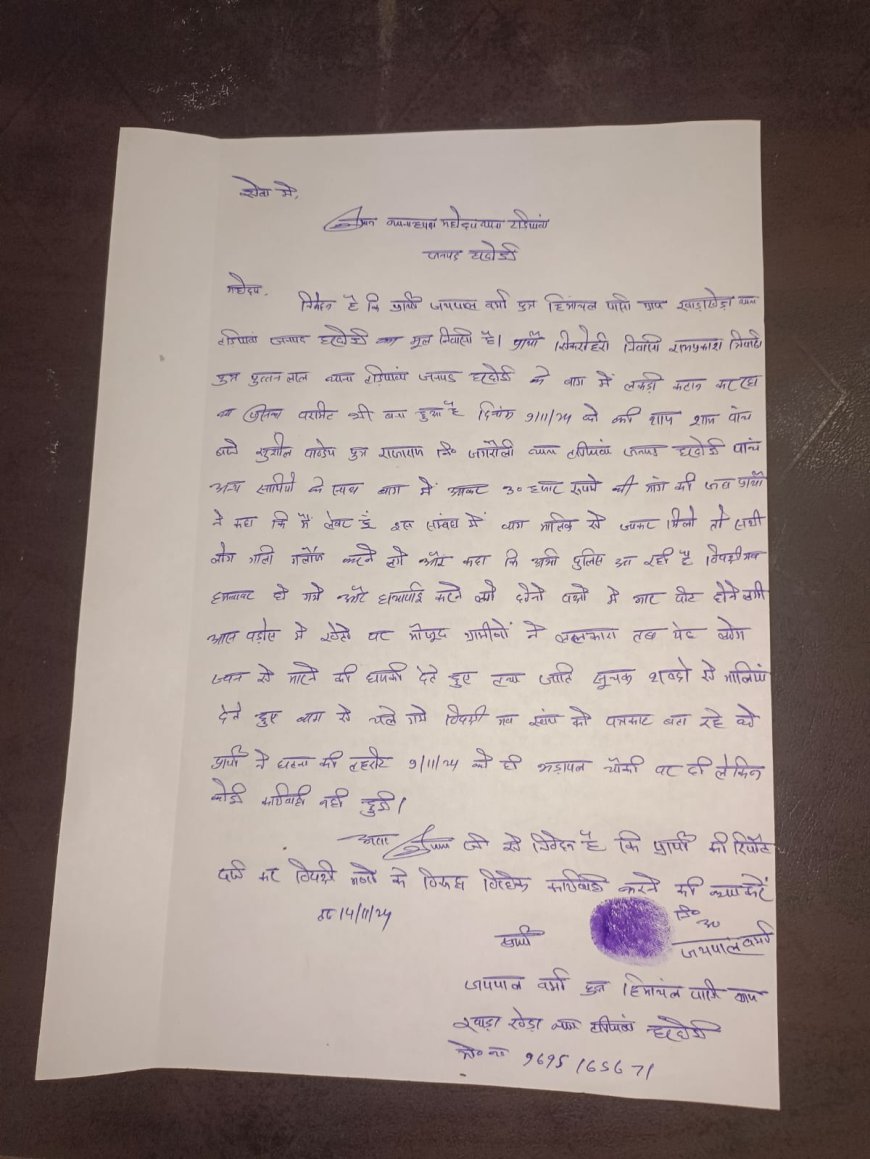 सेवा में,
श्रीमान थानाध्यक्ष महोदय थाना टडियावां
जनपद हरदोई
महोदय,
निवेदन है कि प्रार्थी जयपाल वर्मा पुत्र हिमांचल पासि ग्राम खाड़ाखेड़ा थाना
टडियावां जनपद हरदोई का मूल निवासी है। प्रार्थी सिकरोहरी निवासी रामप्रकाश त्रिवादी
पुत्र पुत्तन लाल थाना टडियावां जनपद हरदोई के बाग में लकड़ी कटान कर रहा
था जिसका परमिट भी बना हुआ है दिनांक 9/11/24 को की शाम पांच
बजे सुशील पाण्डेय पुत्र राजाराम नि० जगरौली थाना टडियावां जनपद हरदोई पांच
अन्य साथियों के साथ बाग में आकर 30 हजार रूपये की मांग की जब प्रार्थी
ने कहा कि मैं लेबर हूं इस संबंध में बाग मालिक से जाकर मिलो तो सभी
लोग गाली गलौज करने लगे और कहा कि अभी पुलिस आ रही है विपक्षीगण
हमलावर हो गये और हाथापाई करने लगे दोनों पक्षों में मार पीट होने लगी
आस पड़ोस में खेतों पर मौजूद ग्रामीणों ने ललकारा तब यह लोग
जान से मारने की धमकी देते हुए तथा जाति सूचक शब्दों से गालियां
देते हुए बाग से चले गये विपक्षी गण स्वयं को पत्रकार बता रहे थे
प्रार्थी ने घटना की तहरीर 9/11/24 को ही भड़ायल चौकी पर दी लेकिन
कोई कार्यवाही नहीं हुई।
अतः श्रीमान जी से निवेदन है कि प्रार्थी की रिपोर्ट
दर्ज कर विपक्षी गणों के विरूद्ध विधिक कार्यवाही करने की कृपा करें
14/11/24
प्रार्थी
नि० अ०
जयपाल वर्मा
जयपाल वर्मा पुत्र हिमांचल पासि ग्राम
खाड़ा खेड़ा थाना टडियावां हरदोई
मो० नं० 9695165671